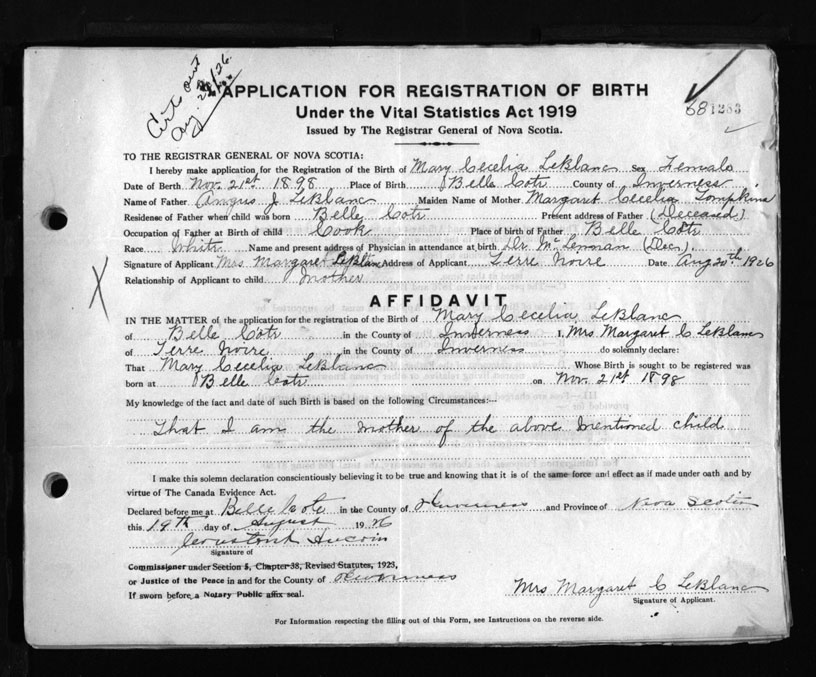 Certs out
Aug. 28/26.
APPLICATION FOR REGISTRATION OF BIRTH
Under the Vital Statistics Act 1919
681283
Issued by The Registrar General of Nova Scotia.
TO THE REGISTRAR GENERAL OF NOVA SCOTIA:
I hereby make application for the Registration of the Birth of Mary Cecelia LeBlanc Sex Female
Date of Berth Nov. 21st 1898 Place of Birth Belle Cote County of Inverness
Name of Father Angus J LeBlanc Maiden Name of Mother Margaret Cecelia Tompkins
Residense of Father when child was born Belle Cote Present address of Father (Deceased)
Occupation of Father at Birth of child Cook Place of birth of Father Belle Cote
Race White Name and present address of Physician in attendance at birth Dr. McLennan (Dec.)
Signature of Applicant Mrs Margaret LeBlanc Address of Applicant Terre Noire Date Aug 20th 1926
Relationship of Applicant to child Mother
AFFIDAVIT
IN THE MATTER of the application for the registration of the Birth of Mary Cecelia LeBlanc
of Belle Cote in the County of Inverness I, Mrs Margaret C LeBlanc
of Terre Noire in the County of Inverness do solemnly declare:
That Mary Cecelia LeBlanc Whose Birth is sought to be registered was
born at Belle Cote on Nov. 21st 1898
My knowledge of the fact and date of such Birth is based on the following Circumstances:—
That I am the mother of the above mentioned child
I make this solemn declaration conscientiously believing it to be true and knowing that it is of the same force and effect as if made under oath and by
virtue of The Canada Evidence Act.
Declared before me at Belle Cote in the County of Inverness and Province of Nova Scotia
this 19th day of August 1926
Aucoin
Signature of
Commissioner under Section 5, Chapter 38, Revised Statutes, 1923,
or Justice of the Peace in and for the County of Inverness
If sworn before a Notary Public affix seal.
Mrs Margaret C LeBlanc
Signature of Applicant.
For Information respecting the filling out of this Form, see Instructions on the reverse side.